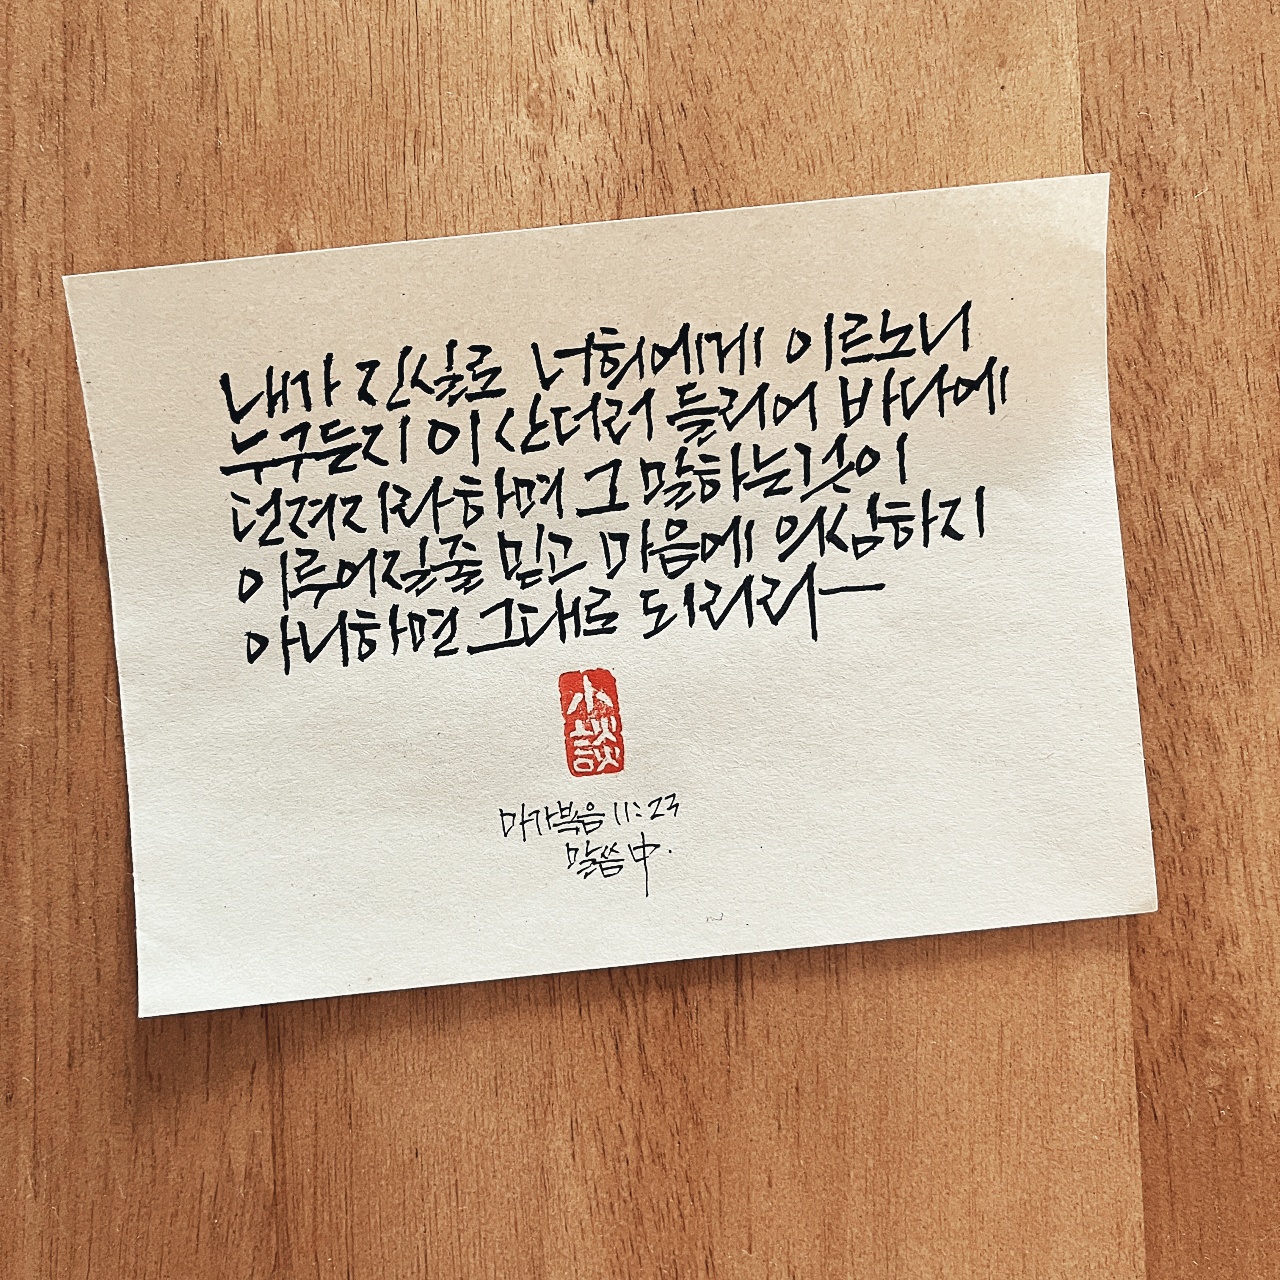 내가 진실로 너희에게 이르노니
누구든지 이 산더러 들리어 바다에
던져지라하며 그 말하는것이
이루어질줄 믿고 마음에 의심하지
아니하면 그대로 되리라—
小談
마가복음 11:23
말씀 中.